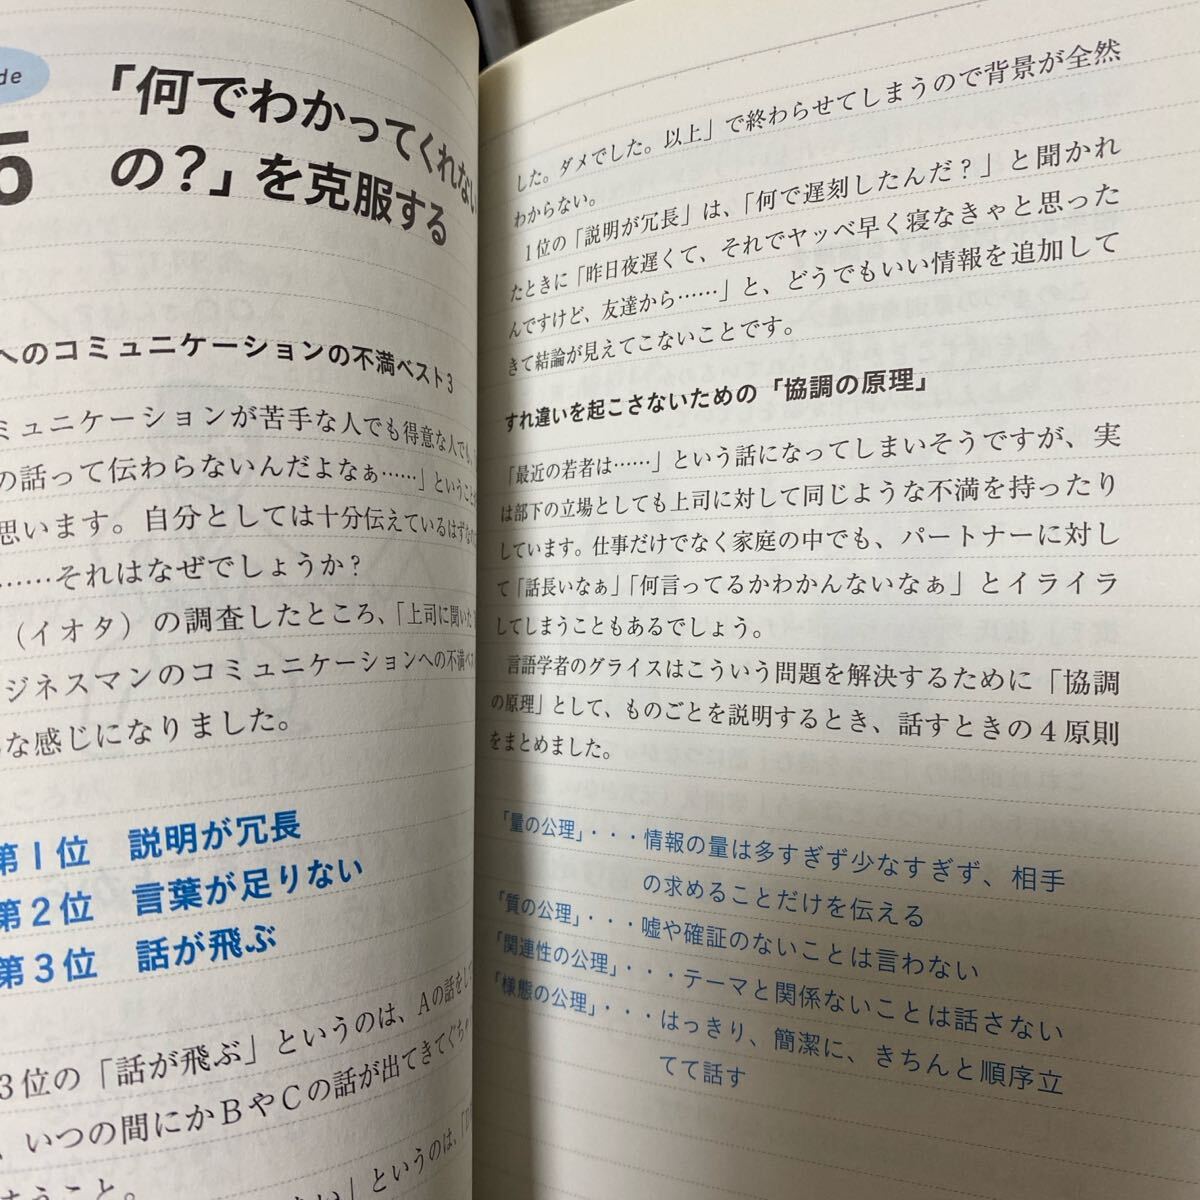 de
5
「何でわかってくれない
の？」を克服する
へのコミュニケーションの不満ベスト3
ミュニケーションが苦手な人でも得意な人でも、
の話って伝わらないんだよなぁ……」ということ
思います。自分としては十分伝えているはずなの
……それはなぜでしょうか？
（イオタ）の調査したところ、「上司に聞いた
ジネスマンのコミュニケーションへの不満ベス
な感じになりました。
第1位　説明が冗長
第2位　言葉が足りない
第3位　話が飛ぶ
3位の「話が飛ぶ」というのは、Aの話をして
、いつの間にかBやCの話が出てきてぐちゃ
まうこと。
」というのは、「
した。ダメでした。以上」で終わらせてしまうので背景が全然
わからない。
1位の「説明が冗長」は、「何で遅刻したんだ？」と聞かれ
たときに「昨日夜遅くて、それでヤッベ早く寝なきゃと思った
んですけど、友達から……」と、どうでもいい情報を追加して
きて結論が見えてこないことです。
すれ違いを起こさないための「協調の原理」
「最近の若者は……」という話になってしまいそうですが、実
は部下の立場としても上司に対して同じような不満を持ったり
しています。仕事だけでなく家庭の中でも、パートナーに対し
て「話長いなぁ」「何言ってるかわかんないなぁ」とイライラ
してしまうこともあるでしょう。
言語学者のグライスはこういう問題を解決するために「協調
の原理」として、ものごとを説明するとき、話すときの4原則
をまとめました。
「量の公理」・・・情報の量は多すぎず少なすぎず、相手
の求めることだけを伝える
「質の公理」・・・嘘や確証のないことは言わない
「関連性の公理」・・・テーマと関係ないことは話さない
「様態の公理」・・・はっきり、簡潔に、きちんと順序立
てて話す